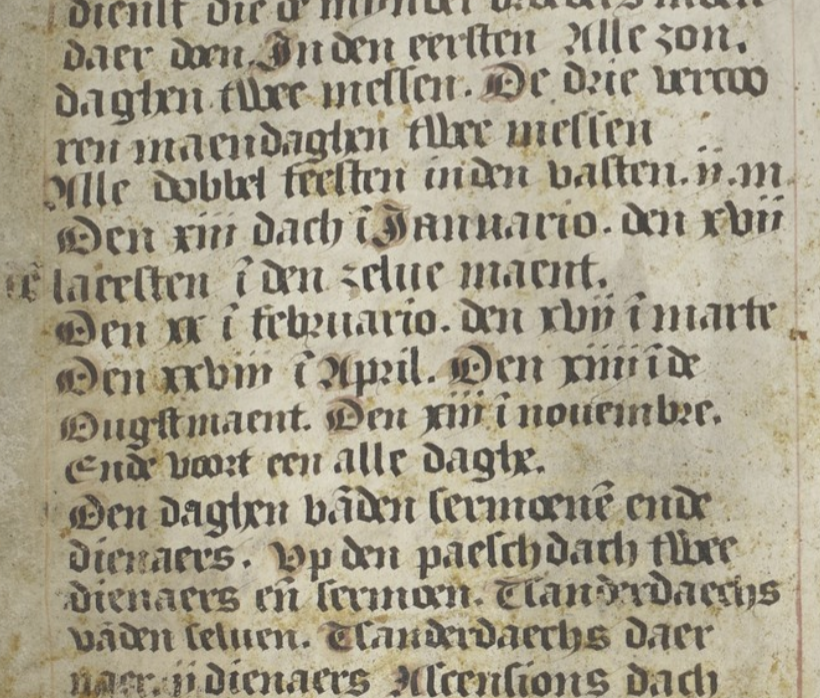 dienst die de
daer doen. In den eersten Alle zon.
daghen twee messen. De drie vercoo
ren maendaghen twee messen
Alle dobbel feesten inden vasten. ii. m
Den xiii dach ī Januario. den xvii
laeesten ī den zelue maent.
Den xx ī februario. den xvii ī marte
Den xxviii ī April. Den xiiii ī de
Ougstmaent. Den xiii ī nouembre.
Ende voort een alle daghe.
Den daghen vāden sermoenē ende
dienaers. Up den paeschdach twee
dienaers eñ sermoen. Tsanderdaechs
vāden seluen. Tsanderdaechs daer
naer. ii dienaers Ascensions dach